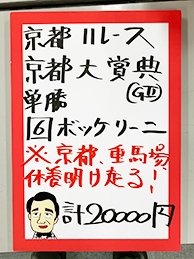 京都11レース
京都大賞典
(GII)
単勝
6ボッケリーニ
※京都、重馬場
休養明け走る!
計20000円